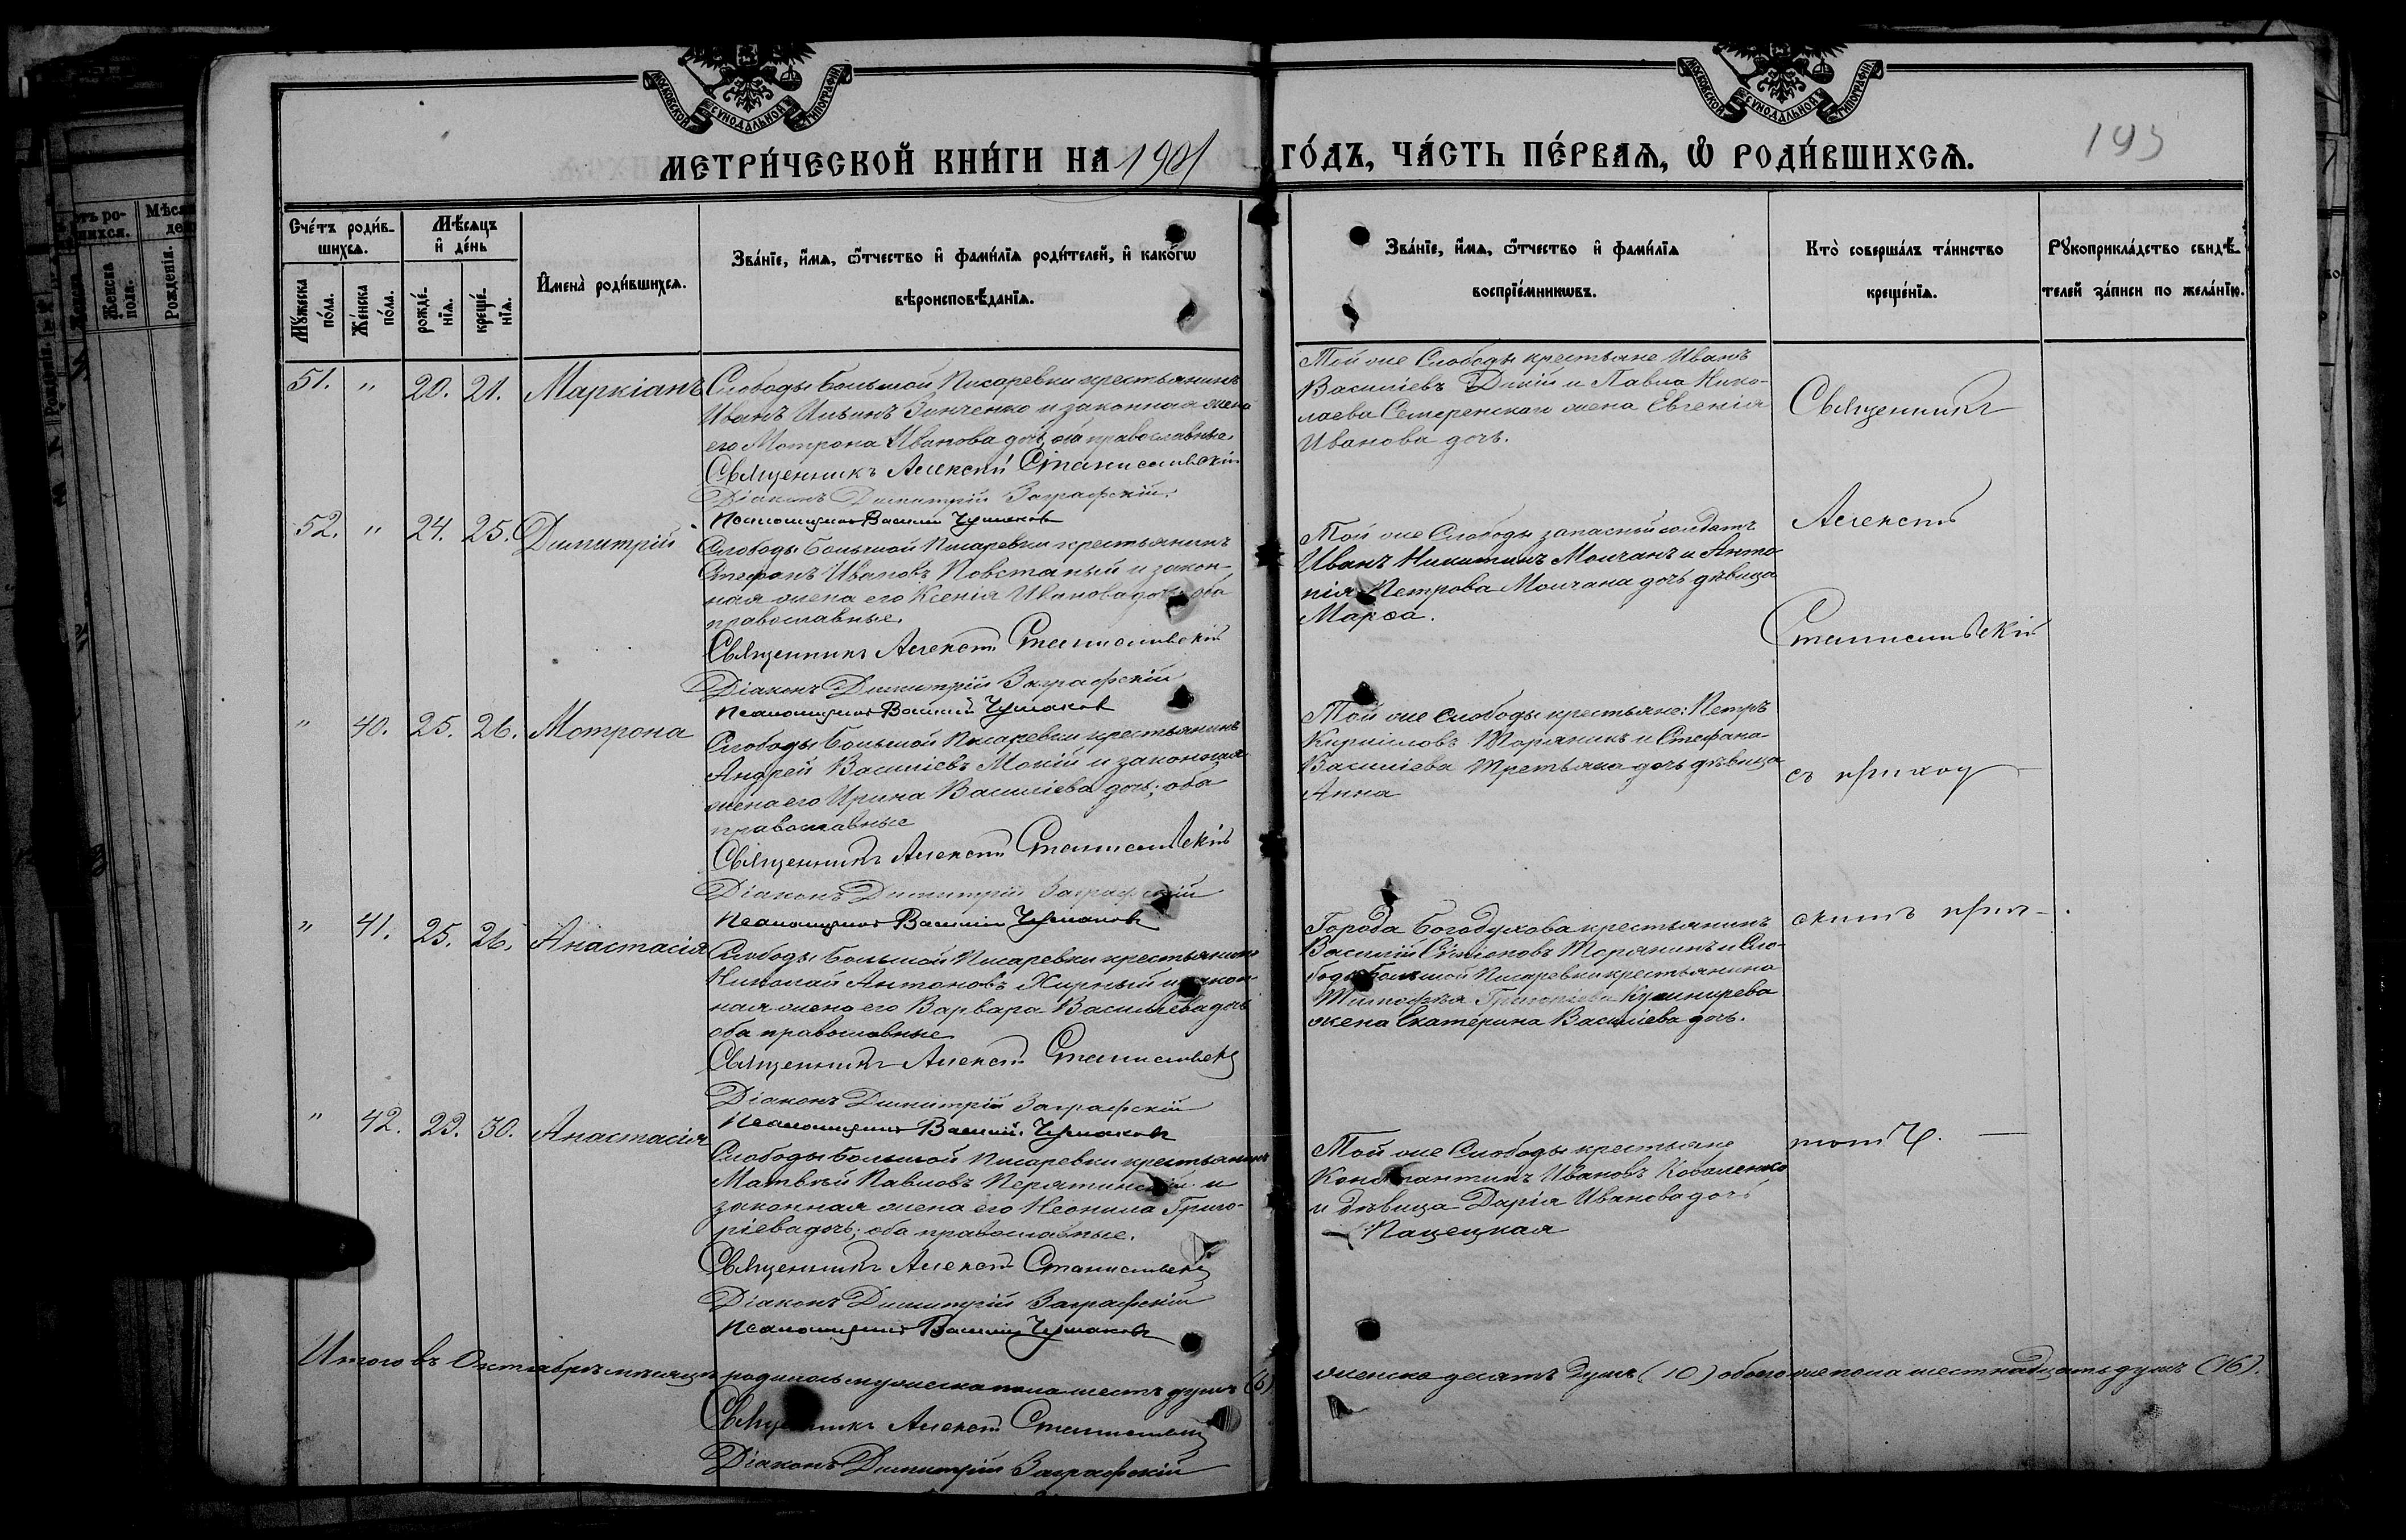 МОСКОВСКОЙ СУНОДАЛЬНОЙ ТИПОГРАФІИ
МОСКОВСКОЙ СУНОДАЛЬНОЙ ТИПОГРАФІИ
МЕТРИ́ЧЕСКОЙ КНИ́ГИ НА 1901 ГО́ДЪ, ЧА́СТЬ ПЕ́РВАѦ, Ѡ҆ РОДИ́ВШИХСѦ.
193
Сче́тъ роди́в-
шихсѧ.
Мꙋ́жеска
по́ла.
Же́нска
по́ла.
Мѣ́сѧцъ
и҆ де́нь
рожде́-
нїѧ.
креще́-
нїѧ.
И҆мена̀ роди́вшихсѧ.
Зва́нїе, и҆́мѧ, ѻ҆́тчество и҆ фами́лїѧ роди́телей, и҆ како́гѡ
вѣроисповѣ́данїѧ.
Зва́нїе, и҆́мѧ, ѻ҆́тчество и҆ фами́лїѧ
воспрїе́мникѡвъ.
Кто̀ соверша́лъ та́инство
креще́нїѧ.
Рꙋкоприкла́дство свидѣ́-
телей за́писи по жела́нїю.
51. " 20. 21. Маркіанъ
Слободы Большой Писаревки крестьянинъ
Иванъ Ильинъ Зинченко и законная жена
его Мотрона Иванова дочь, оба православные.
Священникъ Алексѣй Станиславскій
Діаконъ Димитрій Заграфскій
Псаломщикъ Василій Чумаковъ
Той же Слободы крестьяне Иванъ
Василіевъ Дикій и Павла Нико-
лаева Семеренскаго жена Евгенія
Иванова дочь.
Священникъ
52. " 24. 25. Димитрій
Слободы Большой Писаревки крестьянинъ
Стефанъ Ивановъ Повстаный и закон-
ная жена его Ксенія Иванова дочь; оба
православные.
Священникъ Алексѣй Станиславскій
Діаконъ Димитрій Заграфскій
Псаломщикъ Василій Чумаковъ
Той же Слободы запасный солдатъ
Иванъ Никитинъ Молчанъ и Анто-
нія Петрова Молчана дочь дѣвица
Марѳа.
Алексѣй
Станиславскій
" 40. 25. 26. Мотрона
Слободы Большой Писаревки крестьянинъ
Андрей Василіевъ Мокій и законная
жена его Ирина Василіева дочь; оба
православные
Священникъ Алексѣй Станиславскій
Діаконъ Димитрій Заграфскій
Псаломщикъ Василій Чумаковъ
Той же слободы крестьяне: Петръ
Кирилловъ Торяникъ и Стефана
Василіева Третьяка дочь дѣвица
Анна
съ приход
" 41. 25. 26. Анастасія
Слободы Большой Писаревки крестьянинъ
Николай Антоновъ Жирный и закон-
ная жена его Варвара Василіева дочь
оба православные
Священникъ Алексѣй Станиславск
Діаконъ Димитрій Заграфскій
Псаломщикъ Василій Чумаковъ
Города Богодухова крестьянинъ
Василій Симеоновъ Торянинъ и Сло-
боды Большой Писаревки крестьянина
Тимофея Григоріева Кушнирева
жена Екатерина Василіева дочь.
скимъ прич-
" 42. 29. 30. Анастасія
Слободы Большой Писаревки крестьянинъ
Матвѣй Павловъ Перятинскій и
законная жена его Неонила Григо-
ріева дочь; оба православные.
Священникъ Алексѣй Станиславск
Діаконъ Димитрій Заграфскій
Псаломщикъ Василій Чумаковъ
Той же Слободы крестьяне
Константинъ Ивановъ Коваленко
и дѣвица Дарія Иванова дочь
Пацецкая
томъ.
Итого въ Октябрѣ мѣсяцѣ родилось мужеска пола шесть душъ (6) женска десять душъ (10) обоего же пола шестнадцать душъ (16).
Священникъ Алексѣй Станиславск
Діаконъ Димитрій Заграфскій